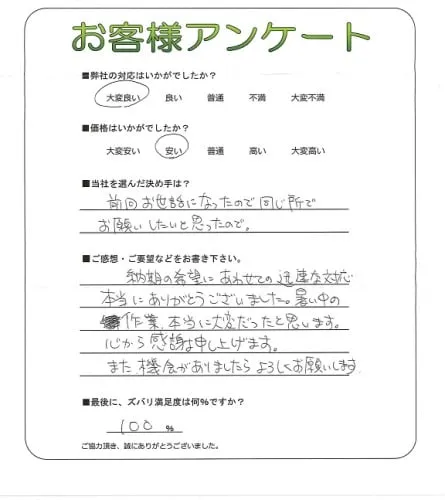 お客様アンケート
■弊社の対応はいかがでしたか?
大変良い 良い 普通 不満 大変不満
■価格はいかがでしたか?
大変安い 安い 普通 高い 大変高い
■当社を選んだ決め手は?
前回お世話になったので同じ所で
お願いしたいと思ったので。
■ご感想・ご要望などをお書き下さい。
納期の希望にあわせての迅速な対応
本当にありがとうございました。暑い中の
作業、本当に大変だったと思います。
心から感謝申し上げます。
また機会がありましたらよろしくお願いします
■最後に、ズバリ満足度は何%ですか?
100 %
ご協力頂き、誠にありがとうございました。